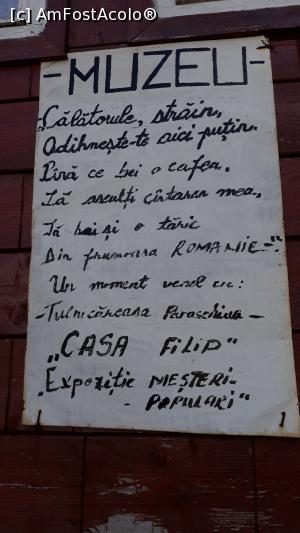 [c] AmFostAcolo®
-MUZEU-
„Călătorule, străin,
Odihnește-te aici puțin.
Pînă ce bei o cafea.
Să asculți cîntarea mea,
Să bei și o tărie
Din frumoasa ROMANIE-".
Un moment vesel cu:
-Tulnicăreasa Paraschiva-
„CASA FiLiP"
„Expoziție MEȘTERI-
- POPULARI"